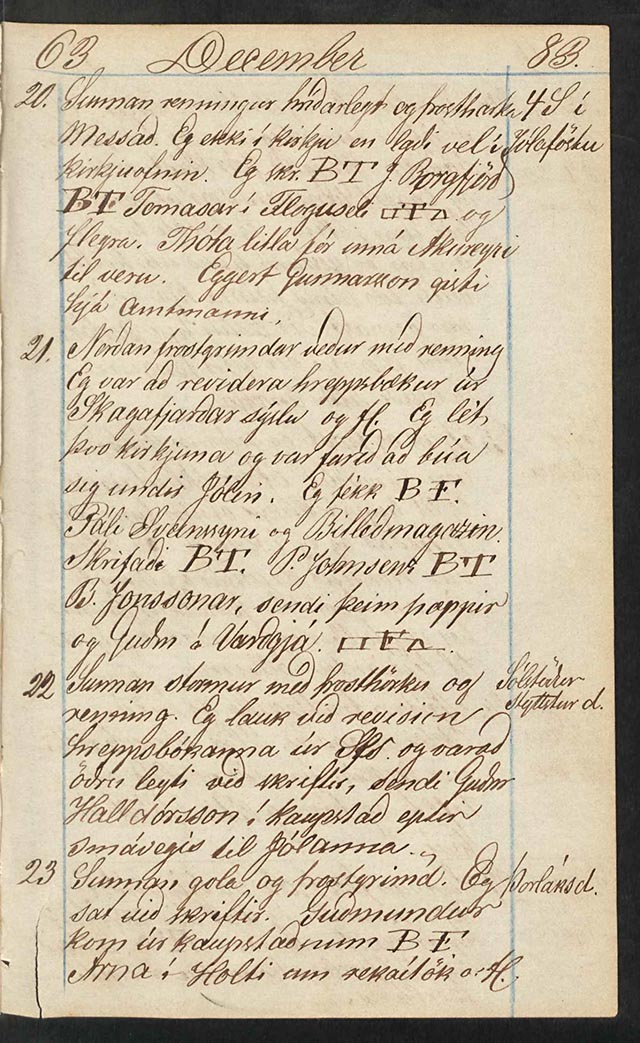 63 December 83.
20. Sunnan renningur hríðarlegt og frostharka 4 S í
Messað. Eg ekki í kirkju en laði vel í Jólaföstu
kirkjuofnin. Eg skr. BT J. Borgfjörð
BF Tomasar í Flöguseli og
flegra. Thóta litla fór inná Akureyri
til veru. Eggert Gunnarsson gisti
hjá Amtmanni.
21. Norðan frostgrimdar veður með renning
Eg var að revidera hreppsbækur úr
Skagafjarðar sýslu og fl. Eg lét
þvo kirkjuna og var farið að búa
sig undir Jólin. Eg fékk BF.
Páli Sveinssyni og Billedmagazin.
Skrifaði BT. P. Johnsens BT
B. Jonssonar, sendi þeim pappir
og Guðm á Varðgjá.
22 Sunnan stormur með frosthörku og Sólstöður
renning. Eg lauk við revision Styttstur d.
hreppsbókanna úr Sfs. og var að
öðru leyti við skriftir, sendi Guðm
Halldórsson í kaupstað eptir
smávegis til Jólanna.
23 Sunnan gola og frostgrimd. Eg Þorláksd.
sat við skriftir. Guðmundur
kom úr kaupstaðnum BF
Arna í Holti um rekaítök o. fl.